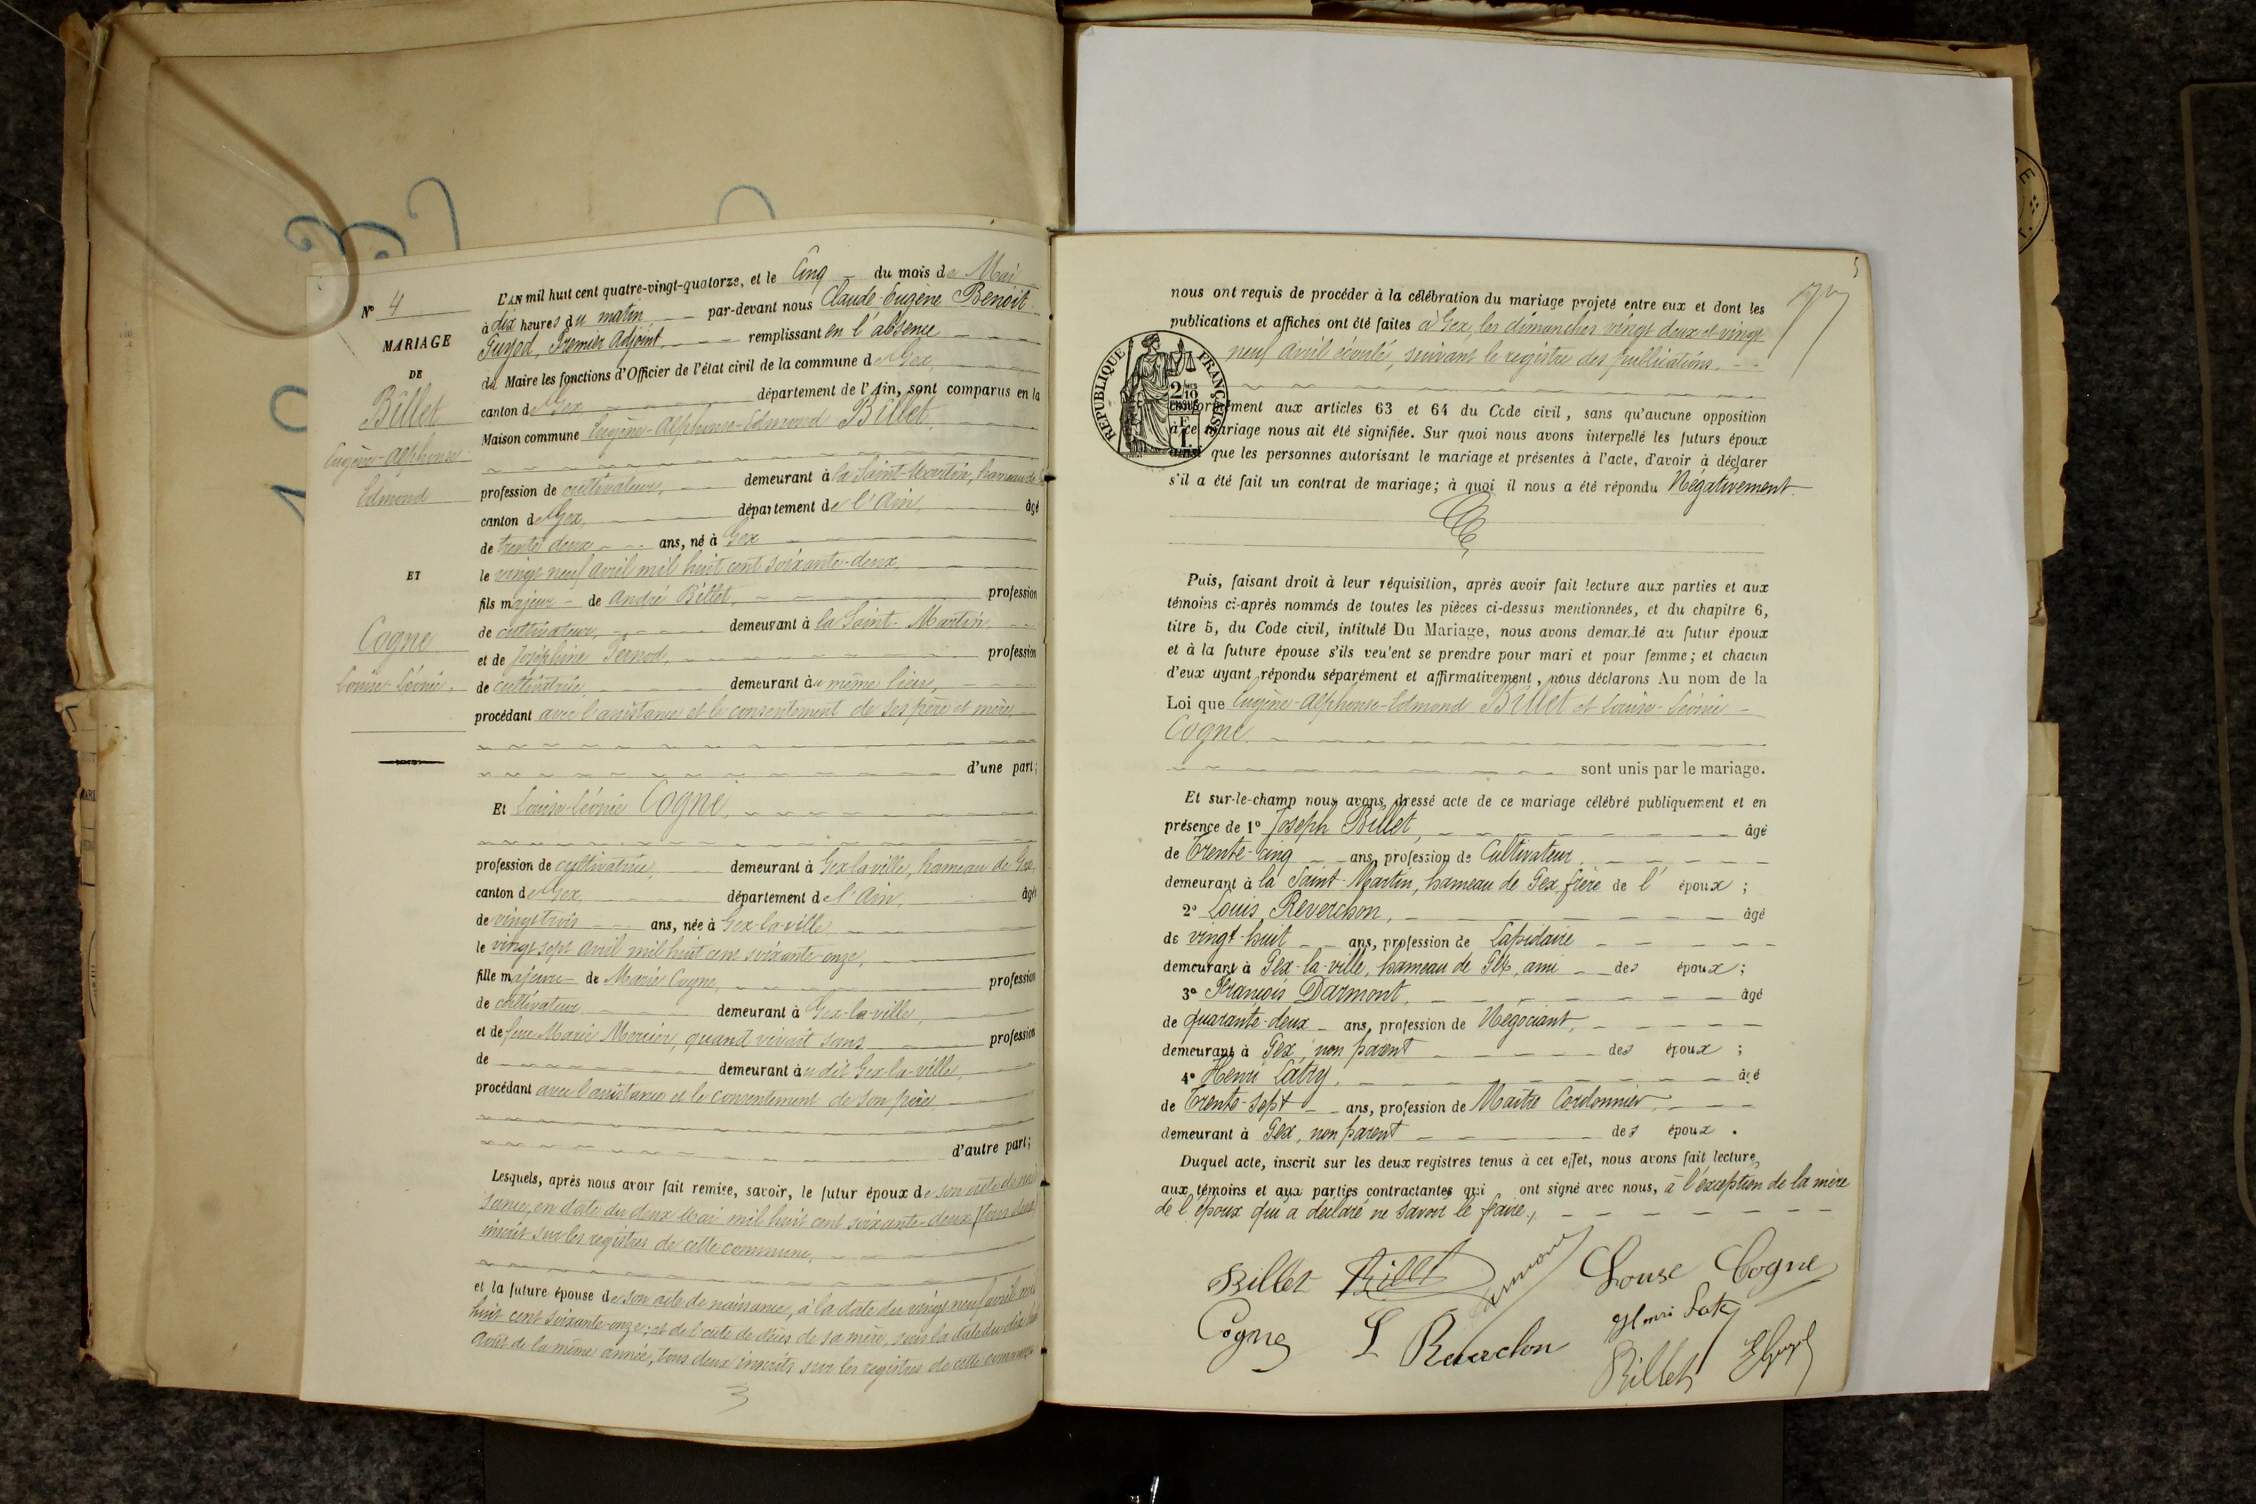 N° 4
MARIAGE
DE
Billet
Eugène-Alphonse
Edmond
ET
Cogne
Louise-Léonie.
L'AN mil huit cent quatre-vingt-quatorze, et le Cinq du mois de Mai
à dix heures du matin par-devant nous Claude-Eugène Benoit
Guyod, Premier Adjoint remplissant en l'absence
du Maire les fonctions d'Officier de l'état civil de la commune de Gex,
canton de Gex département de l'Ain, sont comparus en la
Maison commune Eugène-Alphonse-Edmond Billet,
profession de cultivateur, demeurant à la Saint-Martin, hameau de
canton de Gex, département de l'Ain, âgé
de trente deux ans, né à Gex
le vingt neuf avril mil huit cent soixante-deux
fils majeur de André Billet, profession
de cultivateur, demeurant à la Saint-Martin,
et de Joséphine Pernod, profession
de cultivatrice, demeurant au même lieu,
procédant avec l'assistance et le consentement de ses père et mère,
d'une part;
Et Louise-Léonie Cogne,
profession de cultivatrice, demeurant à Gex-la-ville, hameau de Gex,
canton de Gex, département de l'Ain, âgée
de vingt trois ans, née à Gex-la-ville
le vingt sept avril mil huit cent soixante-onze,
fille majeure de Marie Cogne, profession
de cultivateur, demeurant à Gex-la-ville,
et de feue Marie Mercier, quand vivait sans profession
de demeurant au dit Gex-la-ville,
procédant avec l'assistance et le consentement de son père
d'autre part;
Lesquels, après nous avoir fait remise, savoir, le futur époux de son acte de nais
sance, en date du deux Mai mil huit cent soixante-deux
inscrit sur les registres de cette commune,
et la future épouse de son acte de naissance, à la date du vingt neuf avril mil
huit cent soixante-onze; et de l'acte de décès de sa mère, sous la date du dix
Août de la même année, tous deux inscrits sur les registres de cette commune
3
5
nous ont requis de procéder à la célébration du mariage projeté entre eux et dont les
publications et affiches ont été faites à Gex, les dimanches vingt deux et vingt
neuf Avril écoulé, suivant le registre des publications.
RÉPUBLIQUE FRANÇAISE
2/10
conformément aux articles 63 et 64 du Code civil, sans qu'aucune opposition
à ce mariage nous ait été signifiée. Sur quoi nous avons interpellé les futurs époux
ainsi que les personnes autorisant le mariage et présentes à l'acte, d'avoir à déclarer
s'il a été fait un contrat de mariage; à quoi il nous a été répondu Négativement.
Puis, faisant droit à leur réquisition, après avoir fait lecture aux parties et aux
témoins ci-après nommés de toutes les pièces ci-dessus mentionnées, et du chapitre 6,
titre 5, du Code civil, intitulé Du Mariage, nous avons demandé au futur époux
et à la future épouse s'ils veulent se prendre pour mari et pour femme; et chacun
d'eux ayant répondu séparément et affirmativement, nous déclarons Au nom de la
Loi que Eugène-Alphonse-Edmond Billet et Louise-Léonie
Cogne
sont unis par le mariage.
Et sur-le-champ nous avons dressé acte de ce mariage célébré publiquement et en
présence de 1° Joseph Billet, âgé
de Trente-cinq ans, profession de Cultivateur,
demeurant à la Saint-Martin, hameau de Gex, frère de l'époux;
2° Louis Reverchon, âgé
de vingt-huit ans, profession de Lapidaire
demeurant à Gex-la-ville, hameau de Gex, ami des époux;
3° François Darmont, âgé
de quarante-deux ans, profession de Négociant,
demeurant à Gex, non parent des époux;
4° Henri Latty, âgé
de Trente-sept ans, profession de Maître Cordonnier,
demeurant à Gex, non parent des époux.
Duquel acte, inscrit sur les deux registres tenus à cet effet, nous avons fait lecture
aux témoins et aux parties contractantes qui ont signé avec nous, à l'exception de la mère
de l'époux qui a déclaré ne savoir le faire.
Billet Billet Louise Cogne
Cogne L Reverchon Henri Latty
Billet